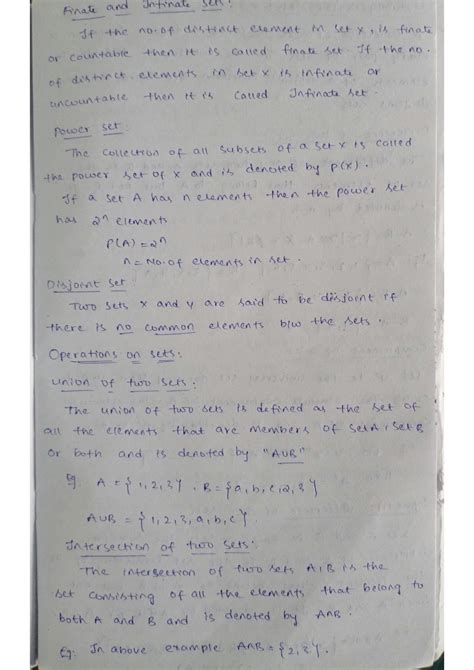 Finate and Infinate sets:
If the no.of distinct element in set x, is finate
or countable then it is called finate set. If the no.
of distinct elements in set x is infinate or
uncountable then it is called Infinate set.
Power set:
The collection of all subsets of a set x is called
the power set of x and is denoted by P(x).
If a set A has n elements then the power set
has 2ⁿ elements
P(A) = 2ⁿ
n = No.of elements in set.
Disjoint set
Two sets x and y are said to be disjoint if
there is no common elements b/w the sets.
Operations on sets:
Union of two sets:
The union of two sets is defined as the set of
all the elements that are members of set A, set B
or both and is denoted by "A∪B"
Eg. A = {1,2,3}, B = {a,b,c,2,3}
A∪B = {1,2,3,a,b,c}.
Intersection of two sets:
The intersection of two sets A, B is the
set consisting of all the elements that belong to
both A and B and is denoted by A∩B.
Eg: In above example A∩B = {2,3}.